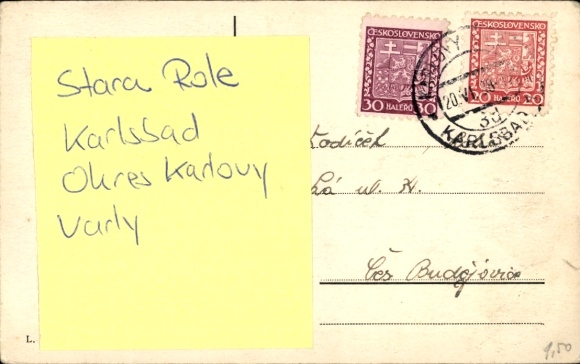 Stara Role
Karlsbad
Okres Karlovy
Varly
ČESKOSLOVENSKO
30 HALÉŘŮ 30
ČESKOSLOVENSKO
20 HALÉŘŮ 20
KARLOVY
20.V
3d
KARLSBAD
ul.
Čes Budějovice
L.
1,50